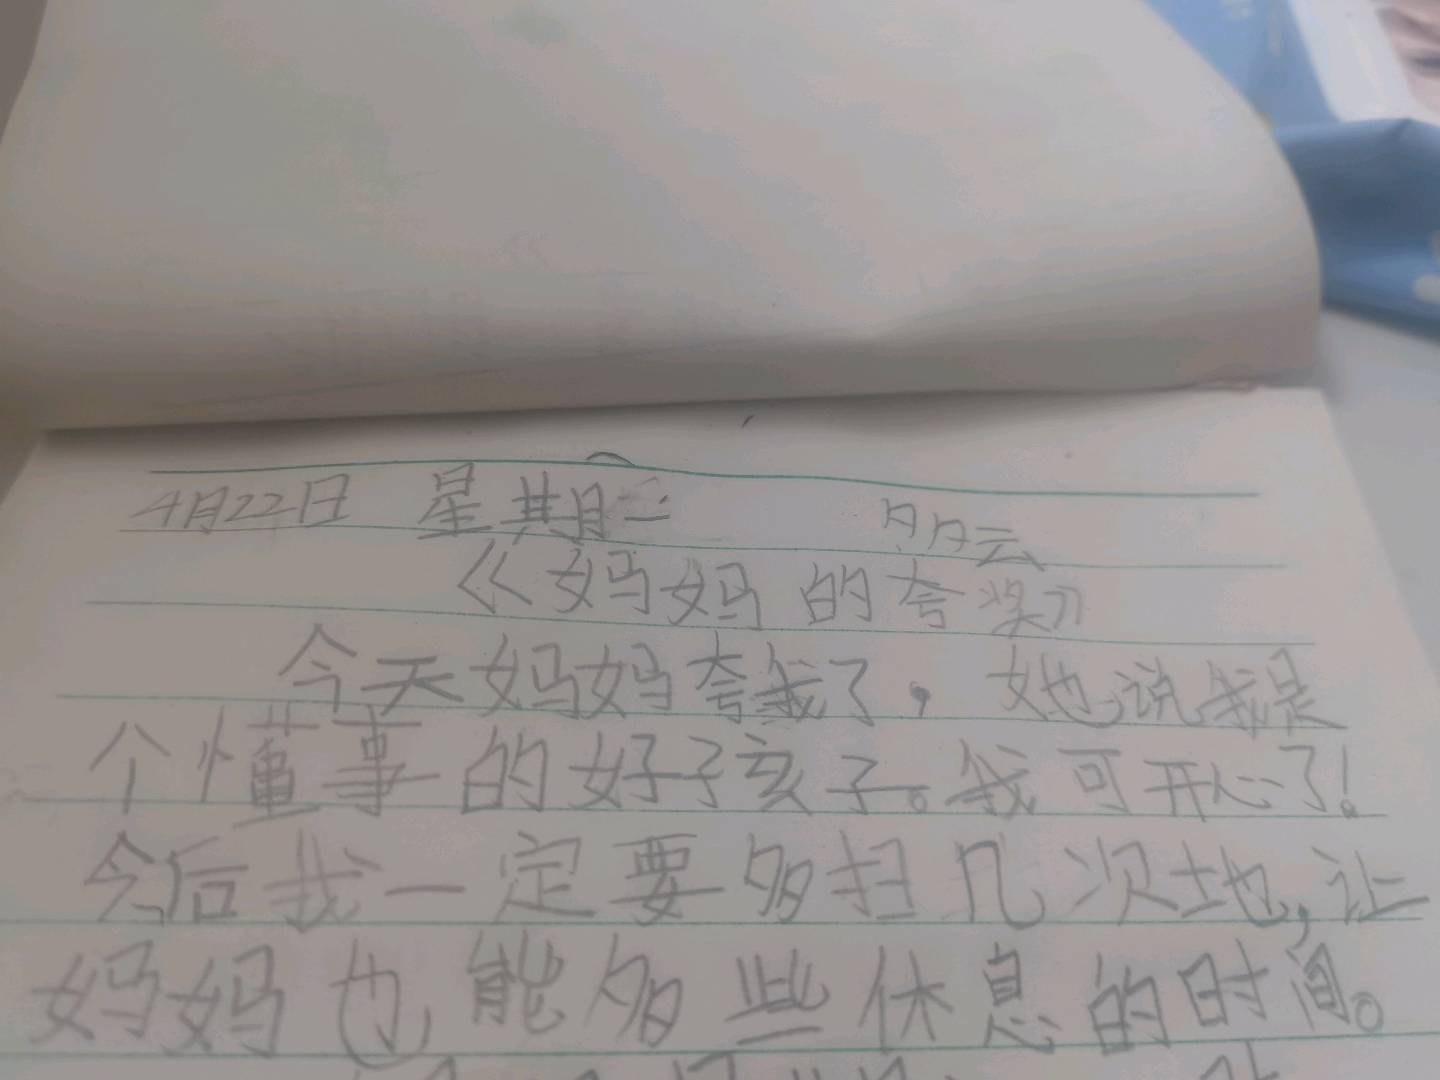 4月22日 星期二 多云
《妈妈的夸奖》
今天妈妈夸我了，她说我是
个懂事的好孩子。我可开心了！
今后我一定要多扫几次地,让
妈妈也能多些休息的时间。